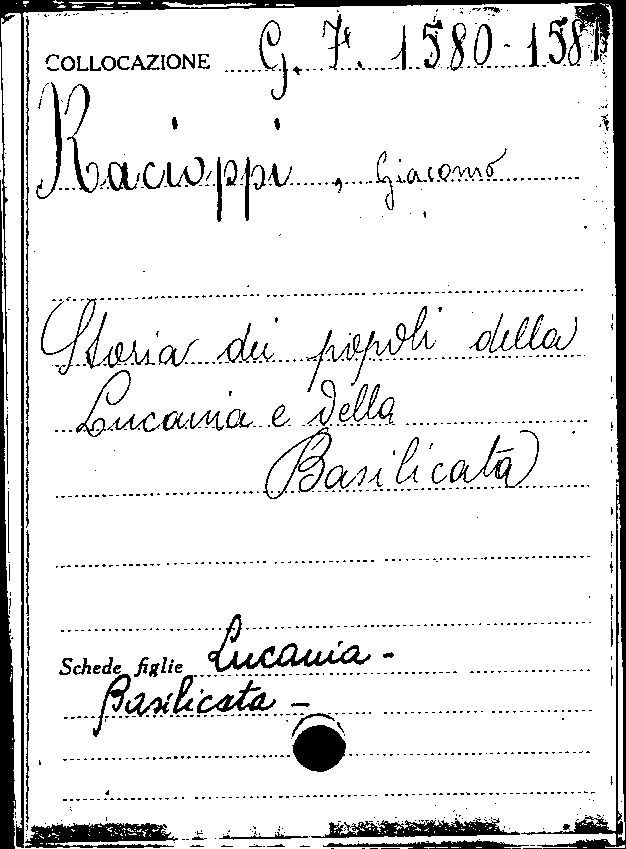 COLLOCAZIONE G. 7. 1580-1581
Racioppi, Giacomo
Storia dei popoli della
Lucania e della
Basilicata
Schede figlie Lucania -
Basilicata -